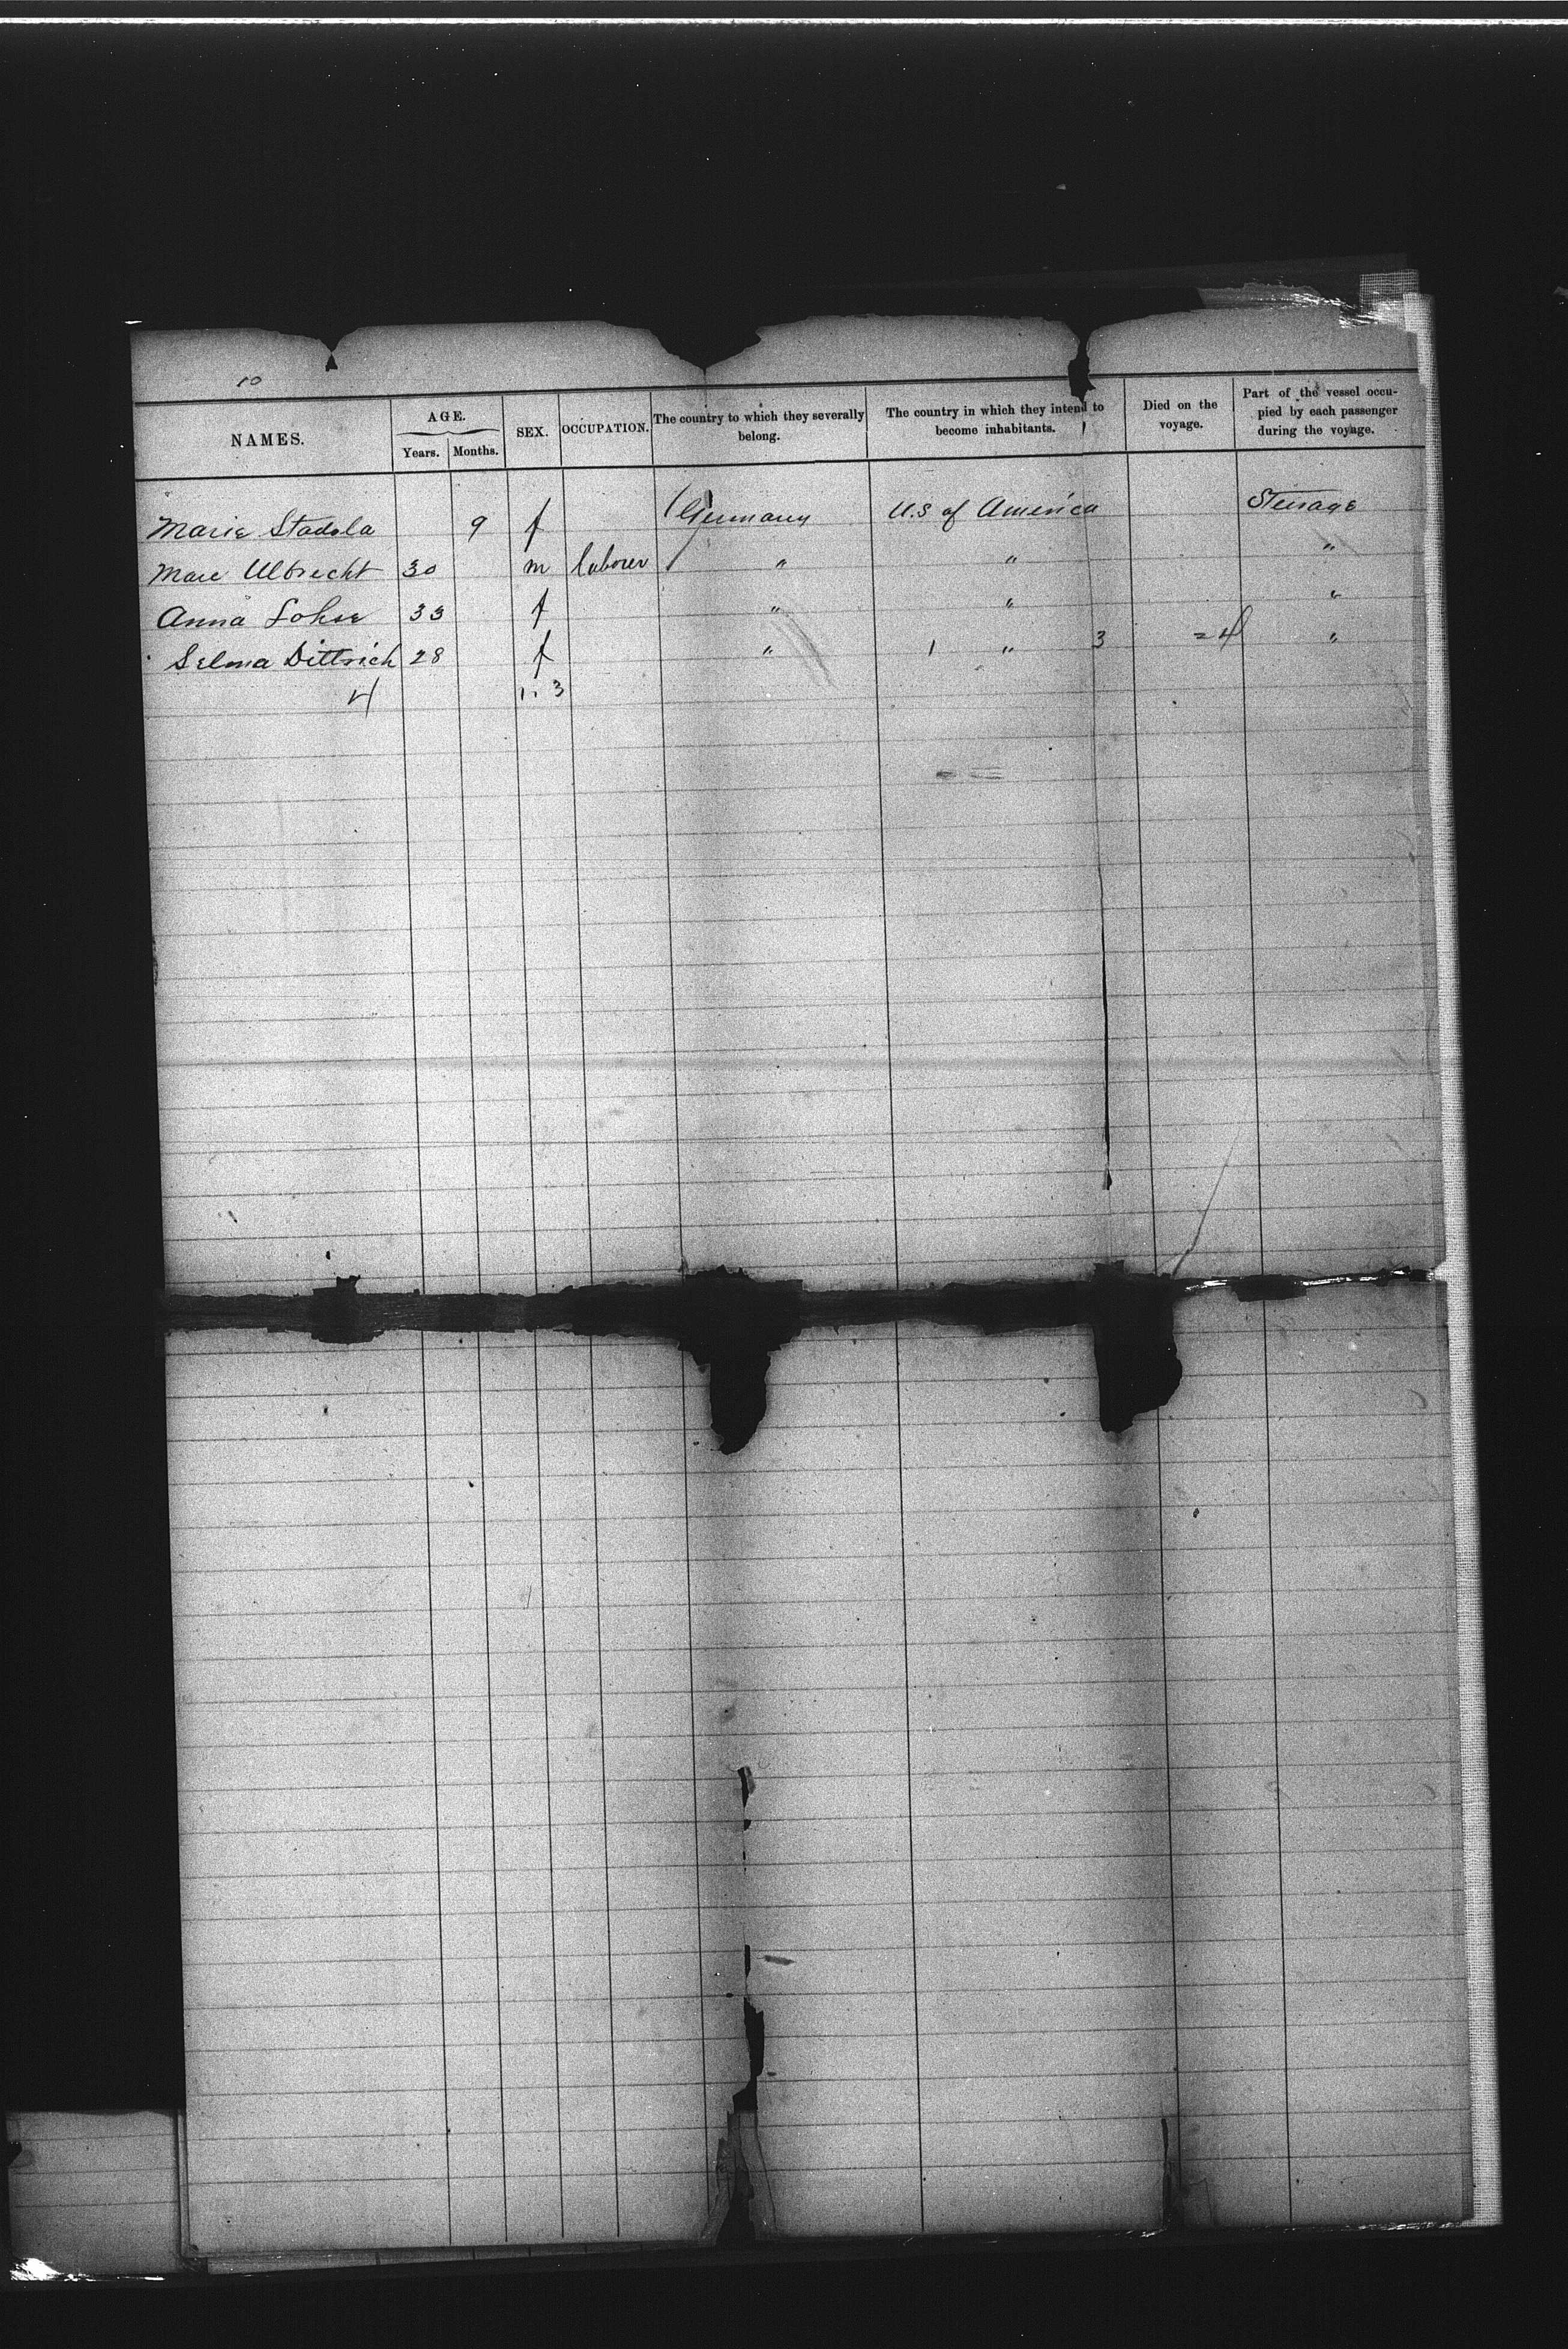 10
NAMES. AGE. Years. Months. SEX. OCCUPATION. The country to which they severally belong. The country in which they intend to become inhabitants. Died on the voyage. Part of the vessel occu- pied by each passenger during the voyage.
Marie Stadola 9 f Germany U.S of America Steerage
Ulbrecht 30 m laborer " " "
Anna Lohse 33 f " " "
Selma Dittrich 28 f " 1 " 3 = 4 "
4 1. 3